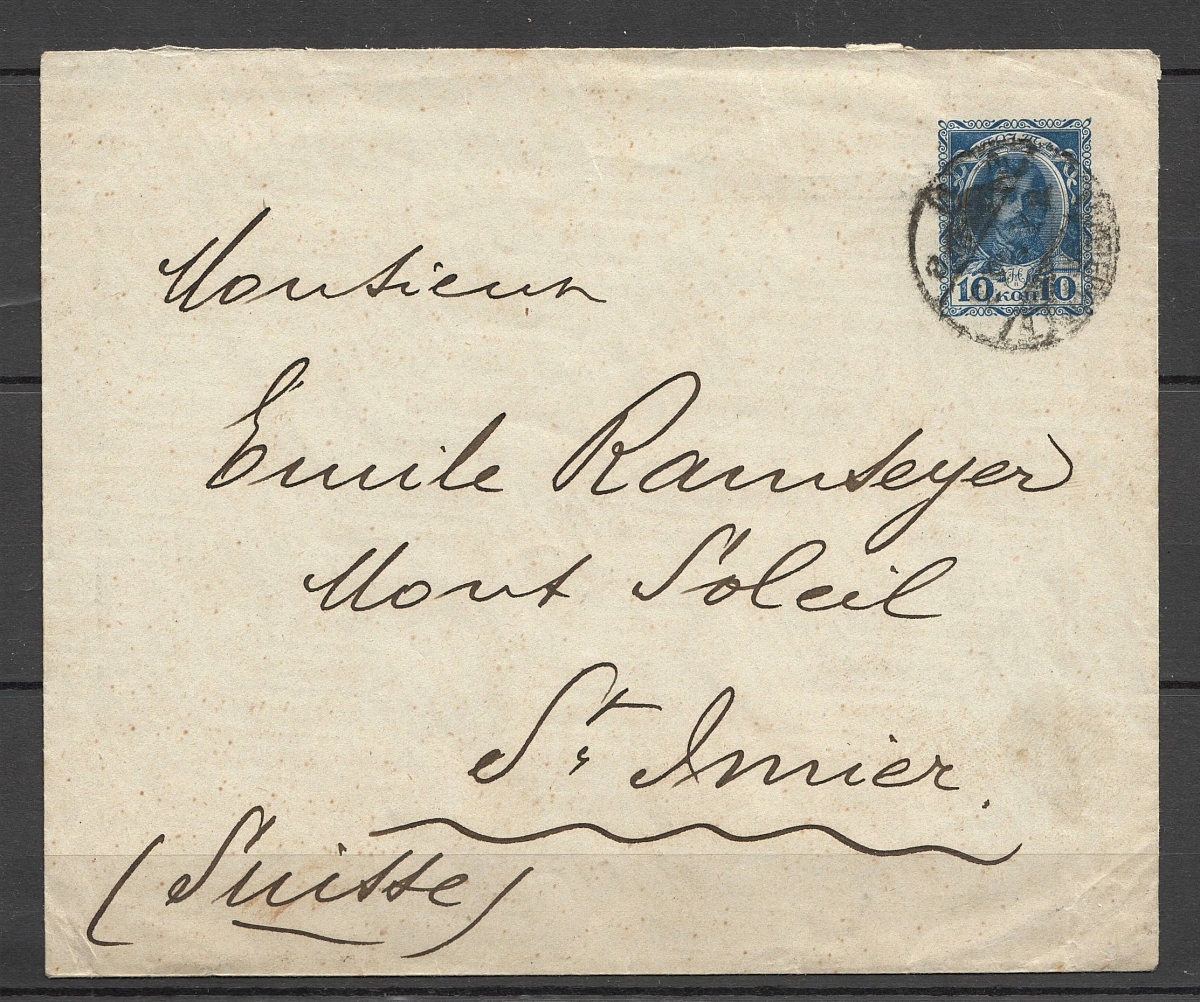 10 КОП 10
Monsieur
Emile Ramseyer
Mont Soleil
St Imier.
(Suisse)